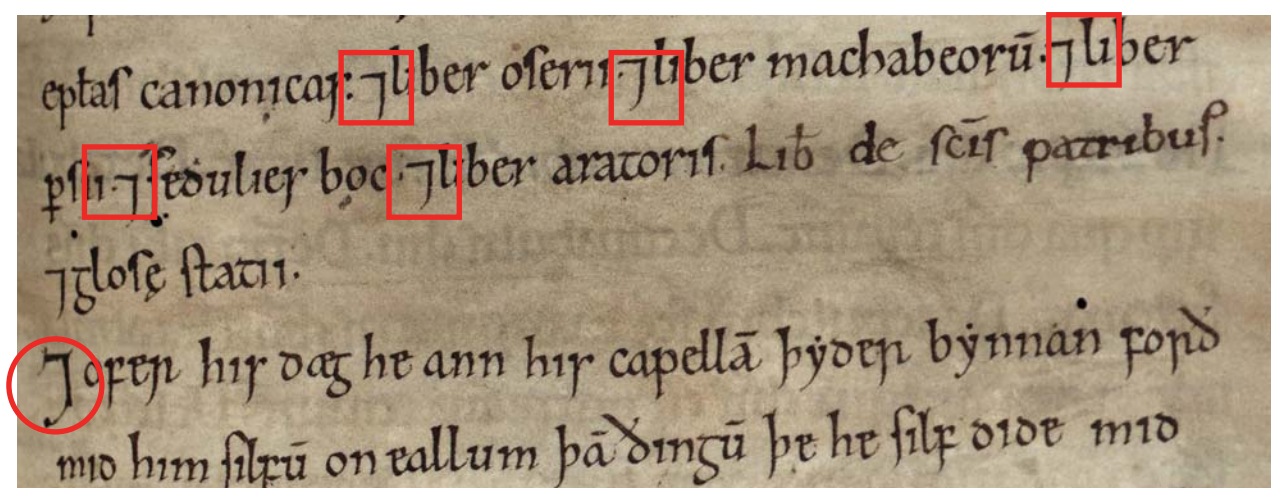 epłas canonicas. ⁊ liber oserii. ⁊ liber machabeorū. ⁊ liber
ꝑsii. ⁊ sedulies boc. ⁊ liber aratoris. Lib̄ de sc̄is patribus.
⁊ glosę statii.
⁊ ofer his dæg he ann his capellā þẏder bẏnnan forð
mid him silfū on eallum þā ðingū þe he silf dide mid